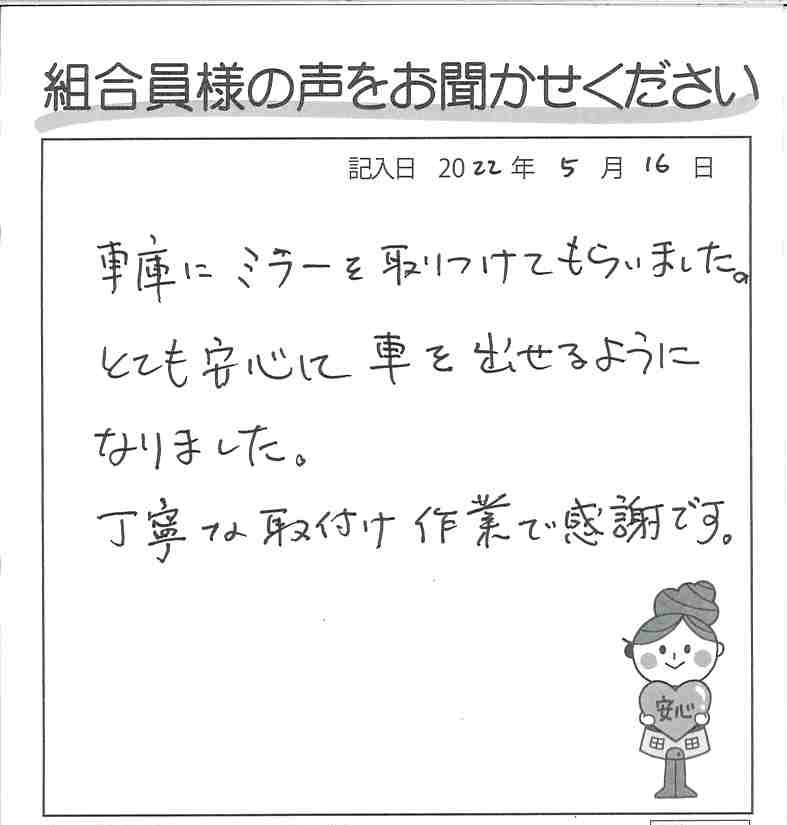 組合員様の声をお聞かせください
記入日 2022年 5月 16日
車庫に ミラーを 取りつけてもらいました。
とても 安心して 車を 出せるように
なりました。
丁寧な 取付け 作業で 感謝です。
安心